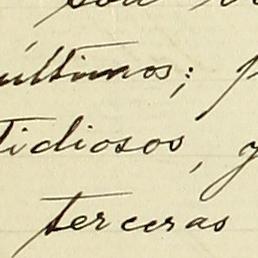 últimos;
tidiosos, y
terceras